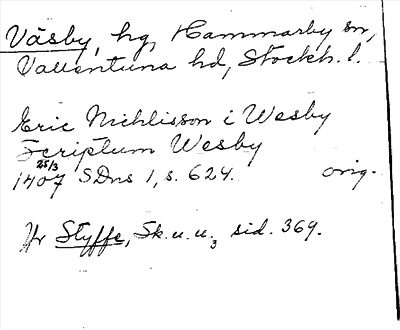 Väsby, hg, Hammarby sn,
Vallentuna hd, Stockh. l.
Eric Nichlisson i Wesby
Scriptum Wesby
25/3
1407 SDns 1, s. 624. orig.
Jfr Styffe, Sk. u. u.3 sid. 369.